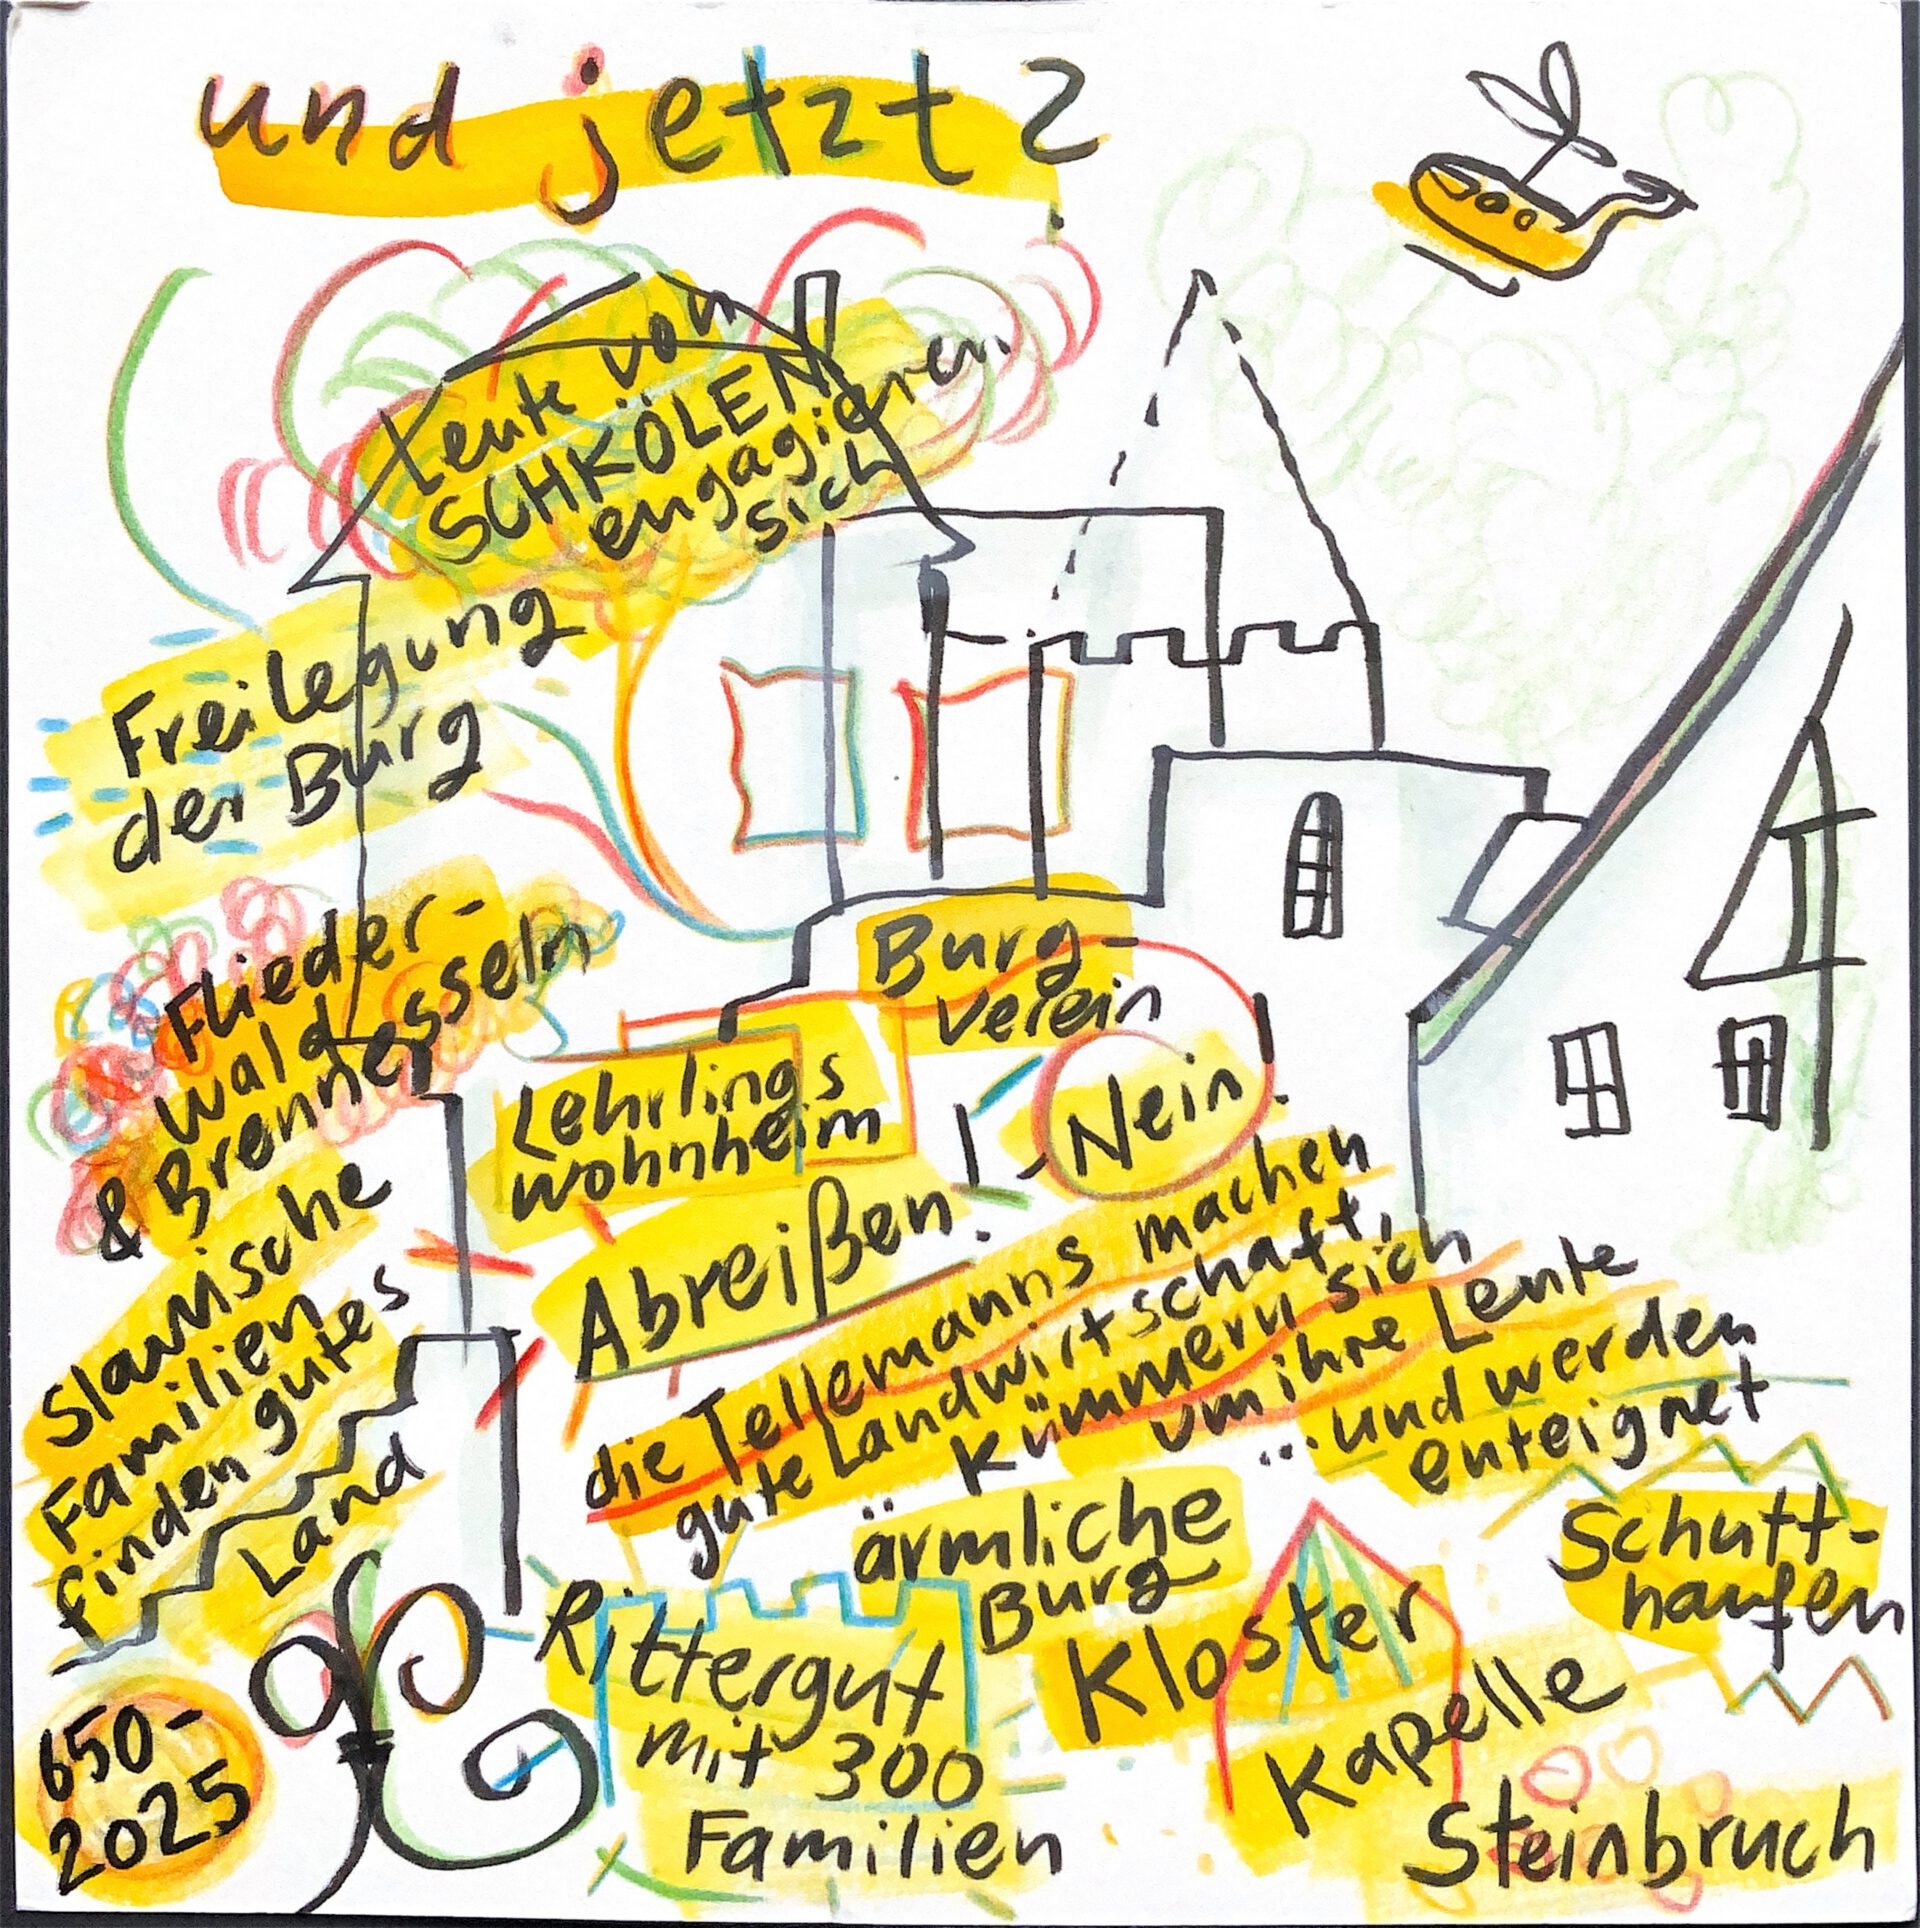 und jetzt?
Leute von
SCHKÖLEN
engagieren
sich
Freilegung
der Burg
Flieder-
wald
& Brennesseln
Burg-
verein
Lehrlings
wohnheim
Nein!
Abreißen!
Slawische
Familien
finden gutes
Land
die Tellemanns machen
gute Landwirtschaft,
kümmern sich
um ihre Leute
...und werden
enteignet
ärmliche
Burg
Schutt-
haufen
Rittergut
mit 300
Familien
Kloster
Kapelle
Steinbruch
650-
2025